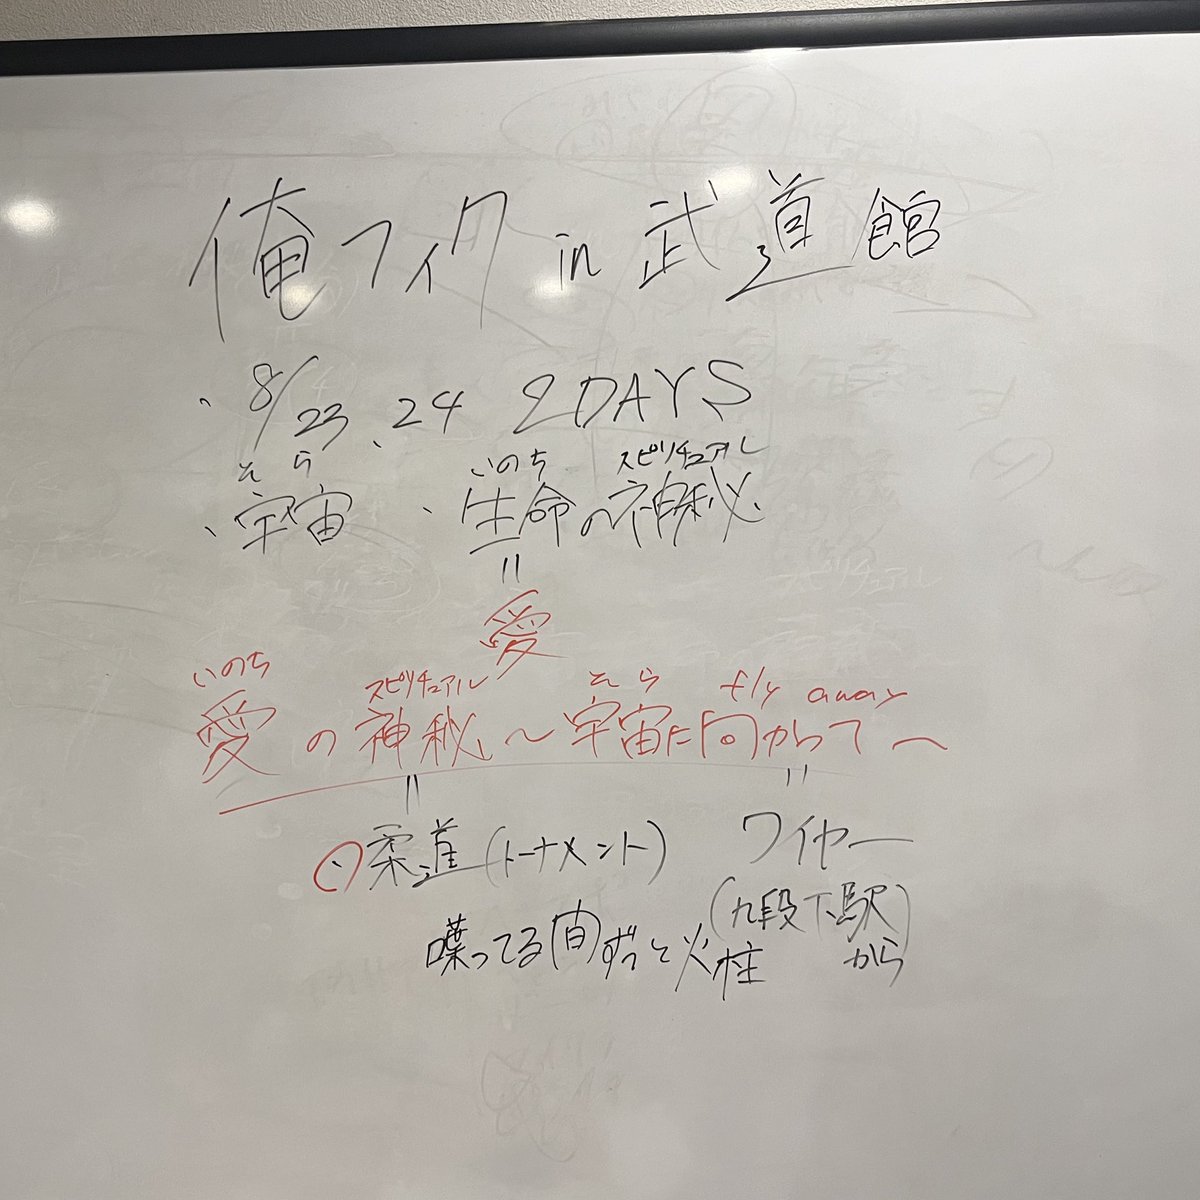 俺フィク in 武道館
・8/23、24 2DAYS
そら いのち スピリチュアル
・宇宙 ・生命の神秘
=
愛
いのち スピリチュアル そら fly away
愛の神秘〜宇宙に向かって〜
= =
柔道(トーナメント) ワイヤー
(九段下駅から)
喋ってる間ずっと火柱